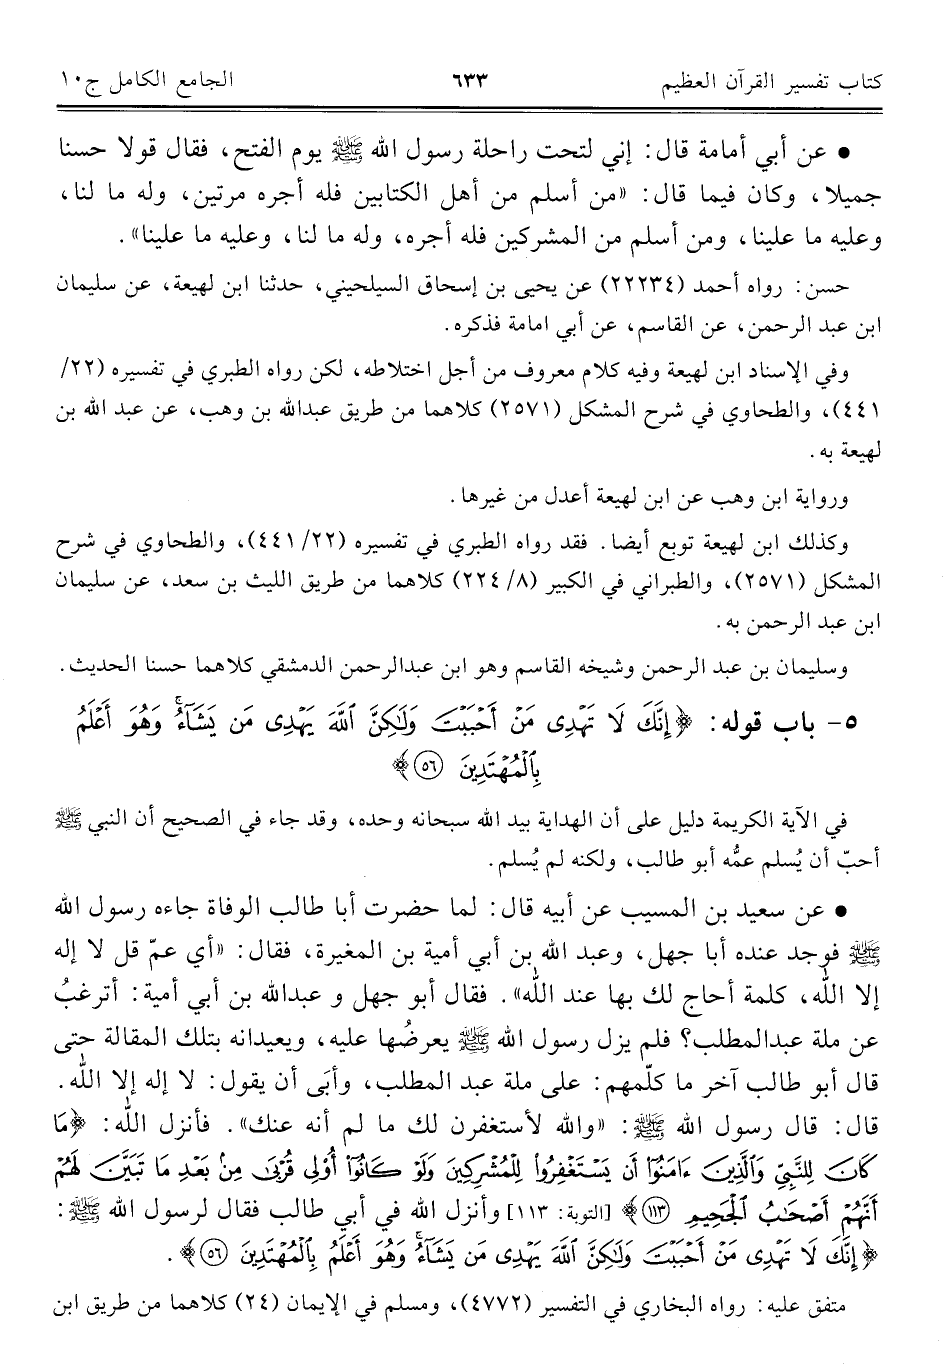 كتاب تفسير القرآن العظيم ٦٣٣ الجامع الكامل ج١٠
● عن أبي أمامة قال: إني لتحت راحلة رسول الله ﷺ يوم الفتح، فقال قولا حسنا
جميلا، وكان فيما قال: «من أسلم من أهل الكتابين فله أجره مرتين، وله ما لنا،
وعليه ما علينا، ومن أسلم من المشركين فله أجره، وله ما لنا، وعليه ما علينا».
حسن: رواه أحمد (٢٢٢٣٤) عن يحيى بن إسحاق السيلحيني، حدثنا ابن لهيعة، عن سليمان
ابن عبد الرحمن، عن القاسم، عن أبي امامة فذكره.
وفي الإسناد ابن لهيعة وفيه كلام معروف من أجل اختلاطه، لكن رواه الطبري في تفسيره (٢٢/
٤٤١)، والطحاوي في شرح المشكل (٢٥٧١) كلاهما من طريق عبدالله بن وهب، عن عبد الله بن
لهيعة به.
ورواية ابن وهب عن ابن لهيعة أعدل من غيرها.
وكذلك ابن لهيعة توبع أيضا. فقد رواه الطبري في تفسيره (٢٢/ ٤٤١)، والطحاوي في شرح
المشكل (٢٥٧١)، والطبراني في الكبير (٨/ ٢٢٤) كلاهما من طريق الليث بن سعد، عن سليمان
ابن عبد الرحمن به.
وسليمان بن عبد الرحمن وشيخه القاسم وهو ابن عبدالرحمن الدمشقي كلاهما حسنا الحديث.
٥- باب قوله: ﴿إِنَّكَ لَا تَهْدِى مَنْ أَحْبَبْتَ وَلَٰكِنَّ ٱللَّهَ يَهْدِى مَن يَشَآءُ ۚ وَهُوَ أَعْلَمُ
بِٱلْمُهْتَدِينَ ٥٦﴾
في الآية الكريمة دليل على أن الهداية بيد الله سبحانه وحده، وقد جاء في الصحيح أن النبي ﷺ
أحبّ أن يُسلم عمُّه أبو طالب، ولكنه لم يُسلم.
● عن سعيد بن المسيب عن أبيه قال: لما حضرت أبا طالب الوفاة جاءه رسول الله
ﷺ فوجد عنده أبا جهل، وعبد الله بن أبي أمية بن المغيرة، فقال: «أي عمّ قل لا إله
إلا الله، كلمة أحاج لك بها عند الله». فقال أبو جهل و عبدالله بن أبي أمية: أترغبُ
عن ملة عبدالمطلب؟ فلم يزل رسول الله ﷺ يعرضُها عليه، ويعيدانه بتلك المقالة حتى
قال أبو طالب آخر ما كلّمهم: على ملة عبد المطلب، وأبَى أن يقول: لا إله إلا الله.
قال: قال رسول الله ﷺ: «والله لأستغفرن لك ما لم أنه عنك». فأنزل الله: ﴿مَا
كَانَ لِلنَّبِيِّ وَٱلَّذِينَ ءَامَنُوٓا۟ أَن يَسْتَغْفِرُوا۟ لِلْمُشْرِكِينَ وَلَوْ كَانُوٓا۟ أُو۟لِى قُرْبَىٰ مِنۢ بَعْدِ مَا تَبَيَّنَ لَهُمْ
أَنَّهُمْ أَصْحَٰبُ ٱلْجَحِيمِ ١١٣﴾ [التوبة: ١١٣] وأنزل الله في أبي طالب فقال لرسول الله ﷺ:
﴿إِنَّكَ لَا تَهْدِى مَنْ أَحْبَبْتَ وَلَٰكِنَّ ٱللَّهَ يَهْدِى مَن يَشَآءُ ۚ وَهُوَ أَعْلَمُ بِٱلْمُهْتَدِينَ ٥٦﴾.
متفق عليه: رواه البخاري في التفسير (٤٧٧٢)، ومسلم في الإيمان (٢٤) كلاهما من طريق ابن